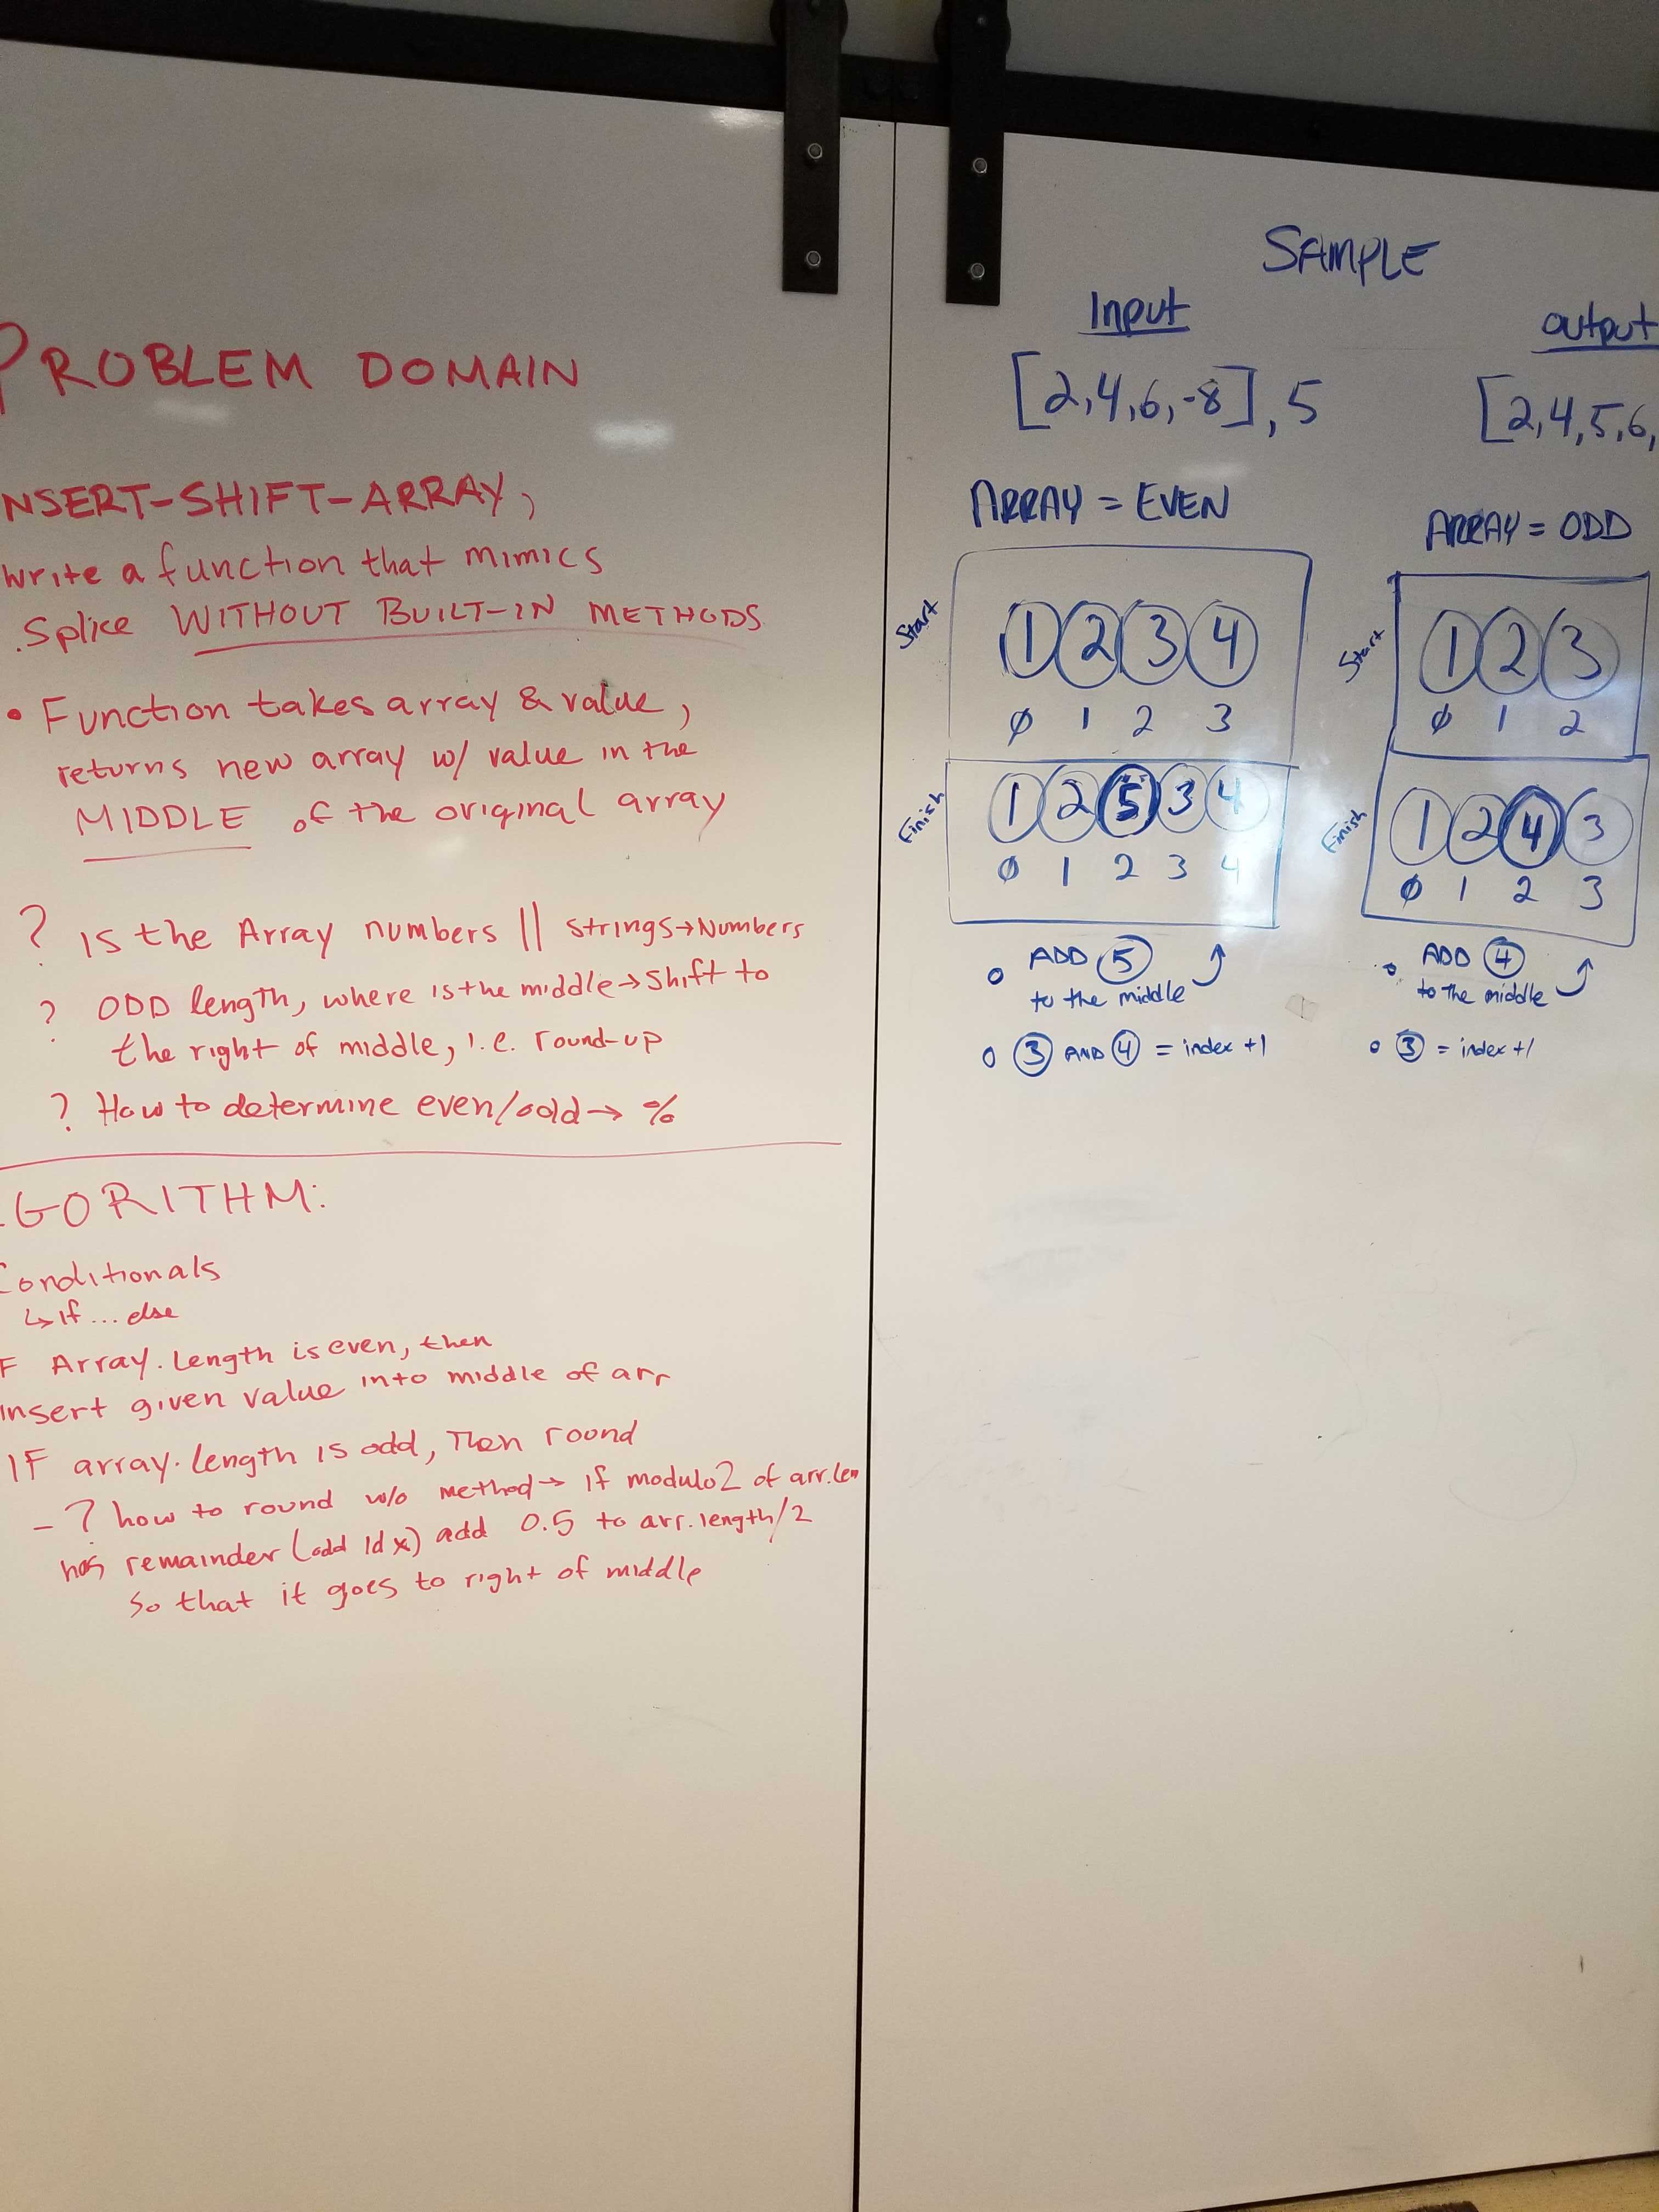 PROBLEM DOMAIN
NSERT-SHIFT-ARRAY,
write a function that mimics
Splice WITHOUT BUILT-IN METHODS
• Function takes array & value,
returns new array w/ value in the
MIDDLE of the original array
? is the Array numbers || strings→Numbers
? ODD length, where is the middle→shift to
the right of middle, i.e. round-up
? How to determine even/odd→ %
GORITHM:
Conditionals
↳ if ... else
F Array.Length is even, then
insert given value into middle of arr
IF array.length is odd, Then round
- ? how to round w/o method→ if modulo2 of arr.len
has remainder (odd idx) add 0.5 to arr.length/2
so that it goes to right of middle
SAMPLE
Input
output
[2,4,6,-8], 5
[2,4,5,6,
ARRAY = EVEN
Start
1 2 3 4
0 1 2 3
Finish
1 2 5 3 4
0 1 2 3 4
o ADD 5
to the middle
o 3 AND 4 = index +1
ARRAY = ODD
Start
1 2 3
0 1 2
Finish
1 2 4 3
0 1 2 3
o ADD 4
to the middle
o 3 = index +1